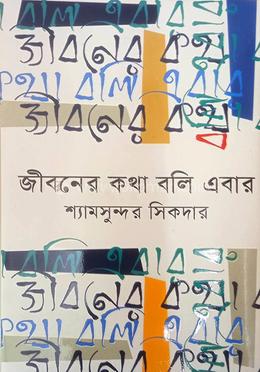 বলি এবার
জীবনের কথা
কথা বলি এবার
জীবনের কথা
জীবনের কথা বলি এবার
শ্যামসুন্দর সিকদার
বলি এবার
জীবনের কথা
কথা বলি এবার
জীবনের কথা